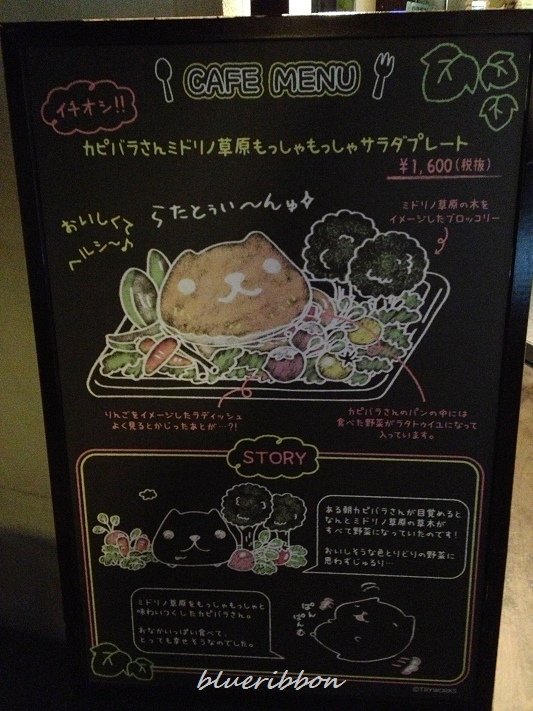 CAFE MENU
イチオシ!!
カピバラさんミドリノ草原もっしゃもっしゃサラダプレート
¥1,600(税抜)
おいしくて
ヘルシ〜♪
らたとぅい〜んゅ
ミドリノ草原の木を
イメージしたブロッコリー
りんごをイメージしたラディッシュ
よく見るとかじったあとが…?!
カピバラさんのパンの中には
食べた野菜がラタトゥイユになって
入っています。
STORY
ある朝カピバラさんが目覚めると
なんとミドリノ草原の草木が
すべて野菜になっていたのです!
おいしそうな色とりどりの野菜に
思わずじゅるり…
ミドリノ草原をもっしゃもっしゃと
味わいつくしたカピバラさん。
おなかいっぱい食べて、
とっても幸せそうなのでした。
ぽん
ぽんぽむ
©TRYWORKS
blueribbon